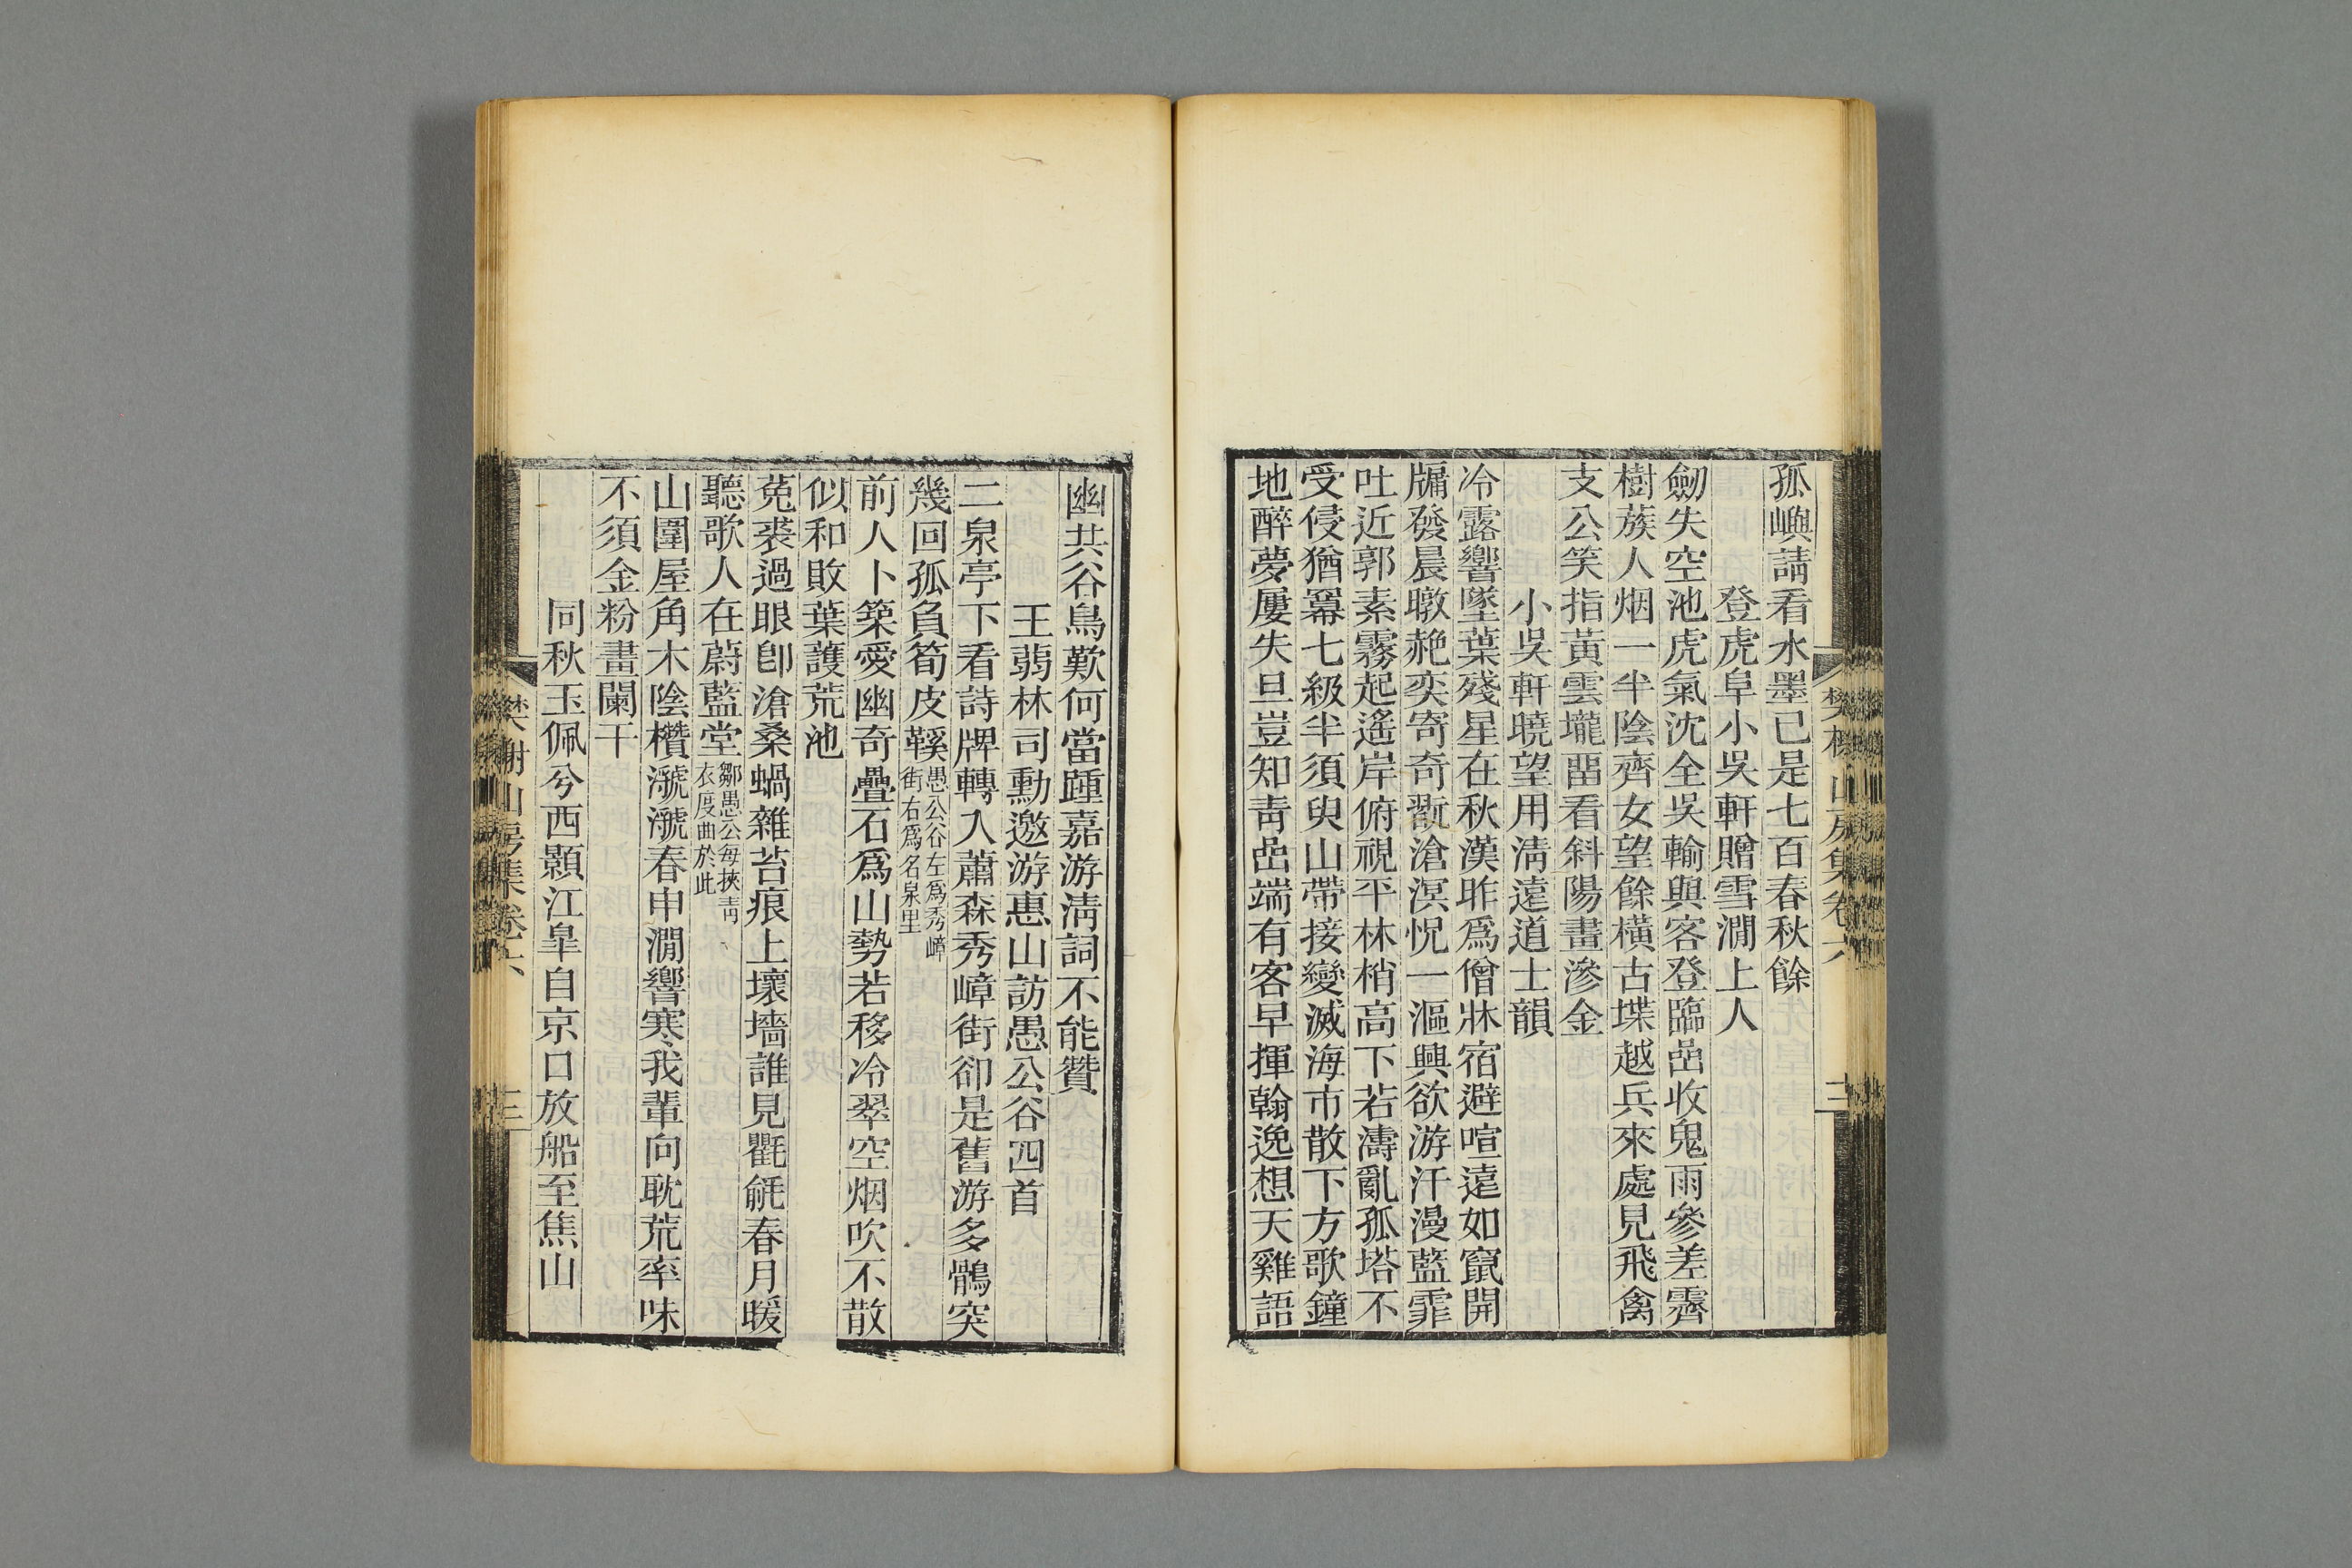 孤嶼請看水墨已是七百春秋餘
登虎阜小吳軒贈雪澗上人
劒失空池虎氣沈全吳輸與客登臨嵒收鬼雨參差霽
樹蔟人烟一半陰齊女望餘橫古堞越兵來處見飛禽
支公笑指黃雲壠畱看斜陽畫滲金
小吳軒曉望用淸遠道士韻
冷露響墜葉殘星在秋漢昨爲僧牀宿避喧遠如竄開
牖發晨暾赩奕寄奇翫滄溟怳一漚興欲游汗漫藍霏
吐近郭素霧起遙岸俯視平林梢高下若濤亂孤塔不
受侵猶冪七級半須臾山帶接變滅海市散下方歌鐘
地醉夢屢失旦豈知靑嵒端有客早揮翰逸想天雞語
幽共谷鳥歎何當踵嘉游淸詞不能贊
王蒻林司勳邀游惠山訪愚公谷四首
二泉亭下看詩牌轉入蕭森秀嶂街卻是舊游多鶻突
幾回孤負筍皮鞵愚公谷左爲秀嶂
街右爲名泉里
前人卜築愛幽奇疊石爲山勢若移冷翠空烟吹不散
似和敗葉護荒池
菟裘過眼卽滄桑蝸雜苔痕上壞墻誰見氍毹春月暖
聽歌人在蔚藍堂鄒愚公每挾靑
衣度曲於此
山圍屋角木陰欑㶁㶁春申澗響寒我輩向耽荒率味
不須金粉畫闌干
同秋玉佩兮西顥江皐自京口放船至焦山
樊榭山房集卷六
三